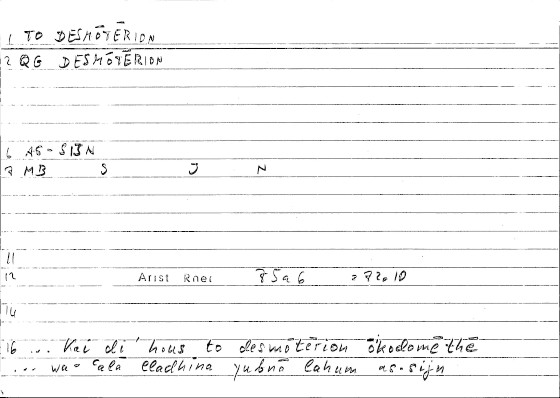 1 TO DESMŌTĒRION
2 QG DESMŌTĒRION
6 AS-SIJN
8 MB S J N
11
12 Arist Rhet 75a6 = 72.10
14
16 ... Kai di' hous to desmōtērion ōkodomēthē
... wa-ʿalā lladhīna yubnā lahum as-sijn